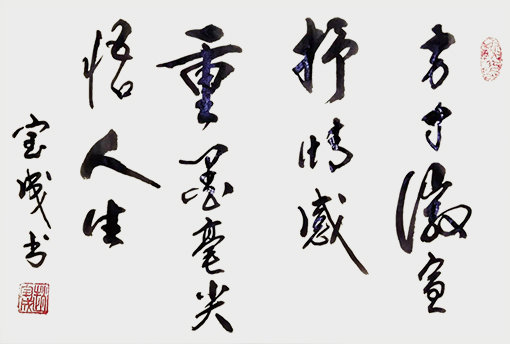 方寸徽宣
抒情感
重墨毫尖
悟人生
宝成书